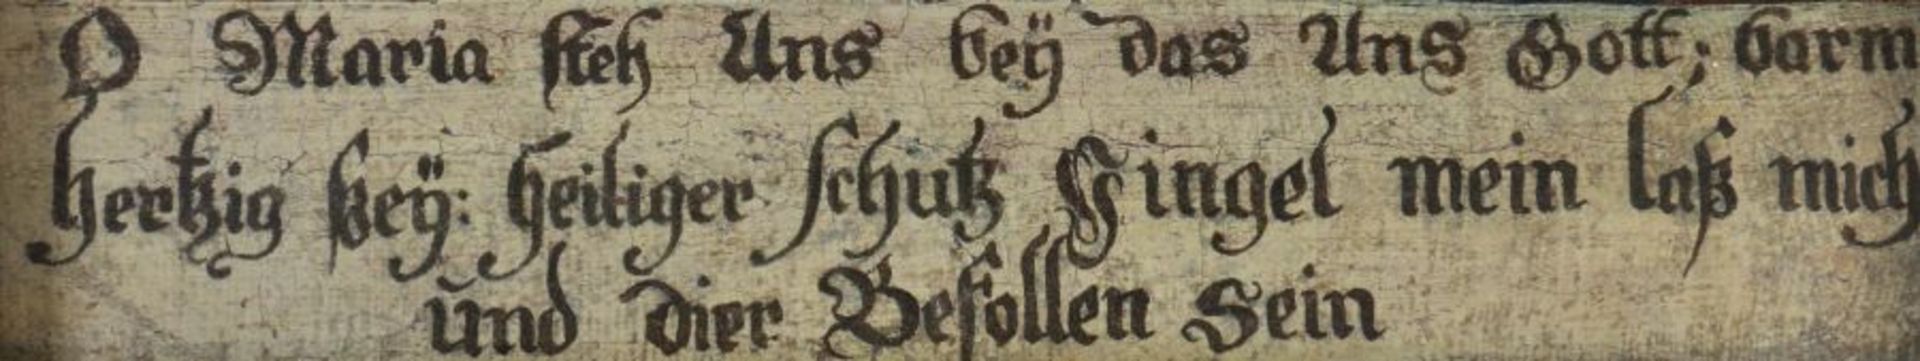 O Maria steh Uns beÿ das Uns Gott; barm
hertzig seÿ: heiliger schutz Eingel mein laß mich
und dier Befollen Sein